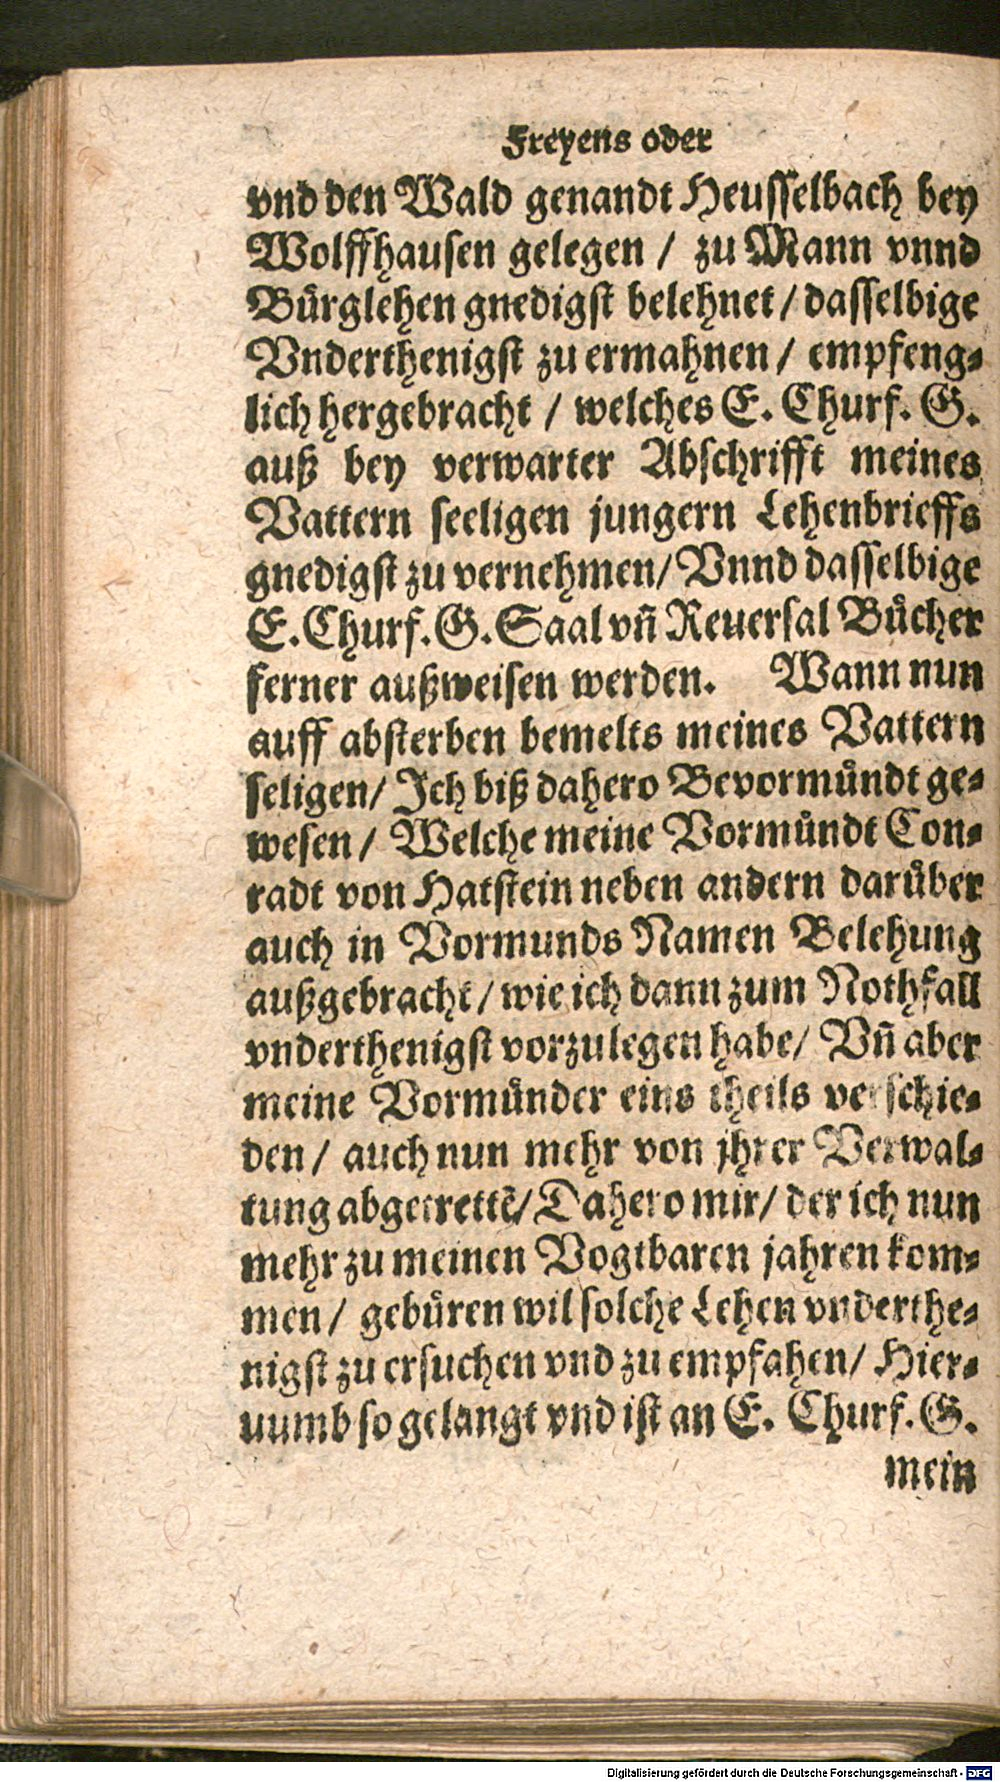 Freyens oder
vnd den Wald genandt Heusselbach bey
Wolffhausen gelegen / zu Mann vnnd
Bürglehen gnedigst belehnet / dasselbige
Vnderthenigst zu ermahnen / empfeng-
lich hergebracht / welches E. Churf. G.
auß bey verwarter Abschrifft meines
Vattern seeligen jungern Lehenbrieffs
gnedigst zu vernehmen / Vnnd dasselbige
E. Churf. G. Saal vñ Reuersal Bücher
ferner außweisen werden. Wann nun
auff absterben bemelts meines Vattern
seligen / Ich biß dahero Bevormündt ge-
wesen / Welche meine Vormündt Con-
radt von Hatstein neben andern darüber
auch in Vormunds Namen Belehung
außgebracht / wie ich dann zum Nothfall
vnderthenigst vorzulegen habe / Vñ aber
meine Vormünder eins theils verschie-
den / auch nun mehr von jhrer Verwal-
tung abgetrettẽ / Dahero mir / der ich nun
mehr zu meinen Vogtbaren jahren kom-
men / gebüren wil solche Lehen vnderthe-
nigst zu ersuchen vnd zu empfahen / Hier-
uumb so gelangt vnd ist an E. Churf. G.
mein
Digitalisierung gefördert durch die Deutsche Forschungsgemeinschaft - DFG